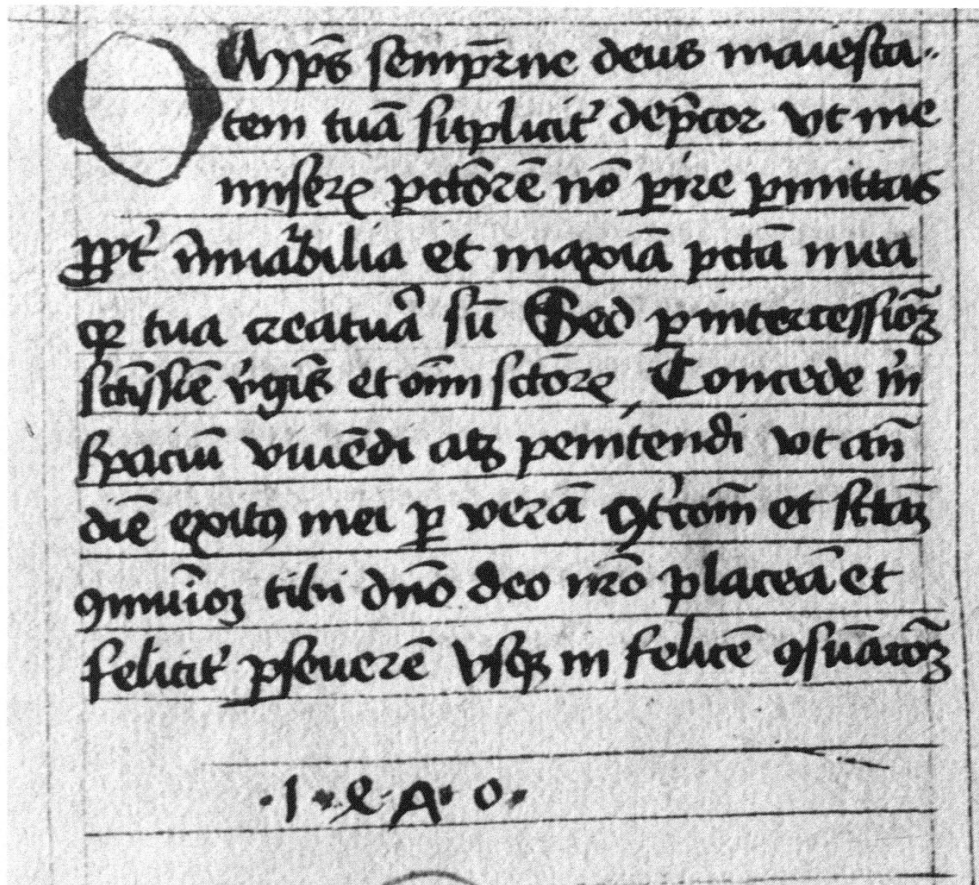 Omp̅s semp̅rne deus maiesta-
tem tuā supliciť dep̅cor vt me
miserꝝ pctōrē nō ꝑire ꝑmittas
ꝓpť et maxīā pctā mea
qꝛ tua creatuā sū Sed ꝑ intercessiōꝫ
v̓gīs et oīm sctōrꝝ Concede m̓
spaciū viuēdi atqꝫ penitendi vt an̄
diē exitꝰ mei ꝑ verā ꝯťcōm̄ et
ꝯmuīoꝫ tibi dn̄o deo nr̄o placeā et
feliciť ꝑseuerē vsqꝫ in felicē ꝯsūacōꝫ
·I·E·A·O·